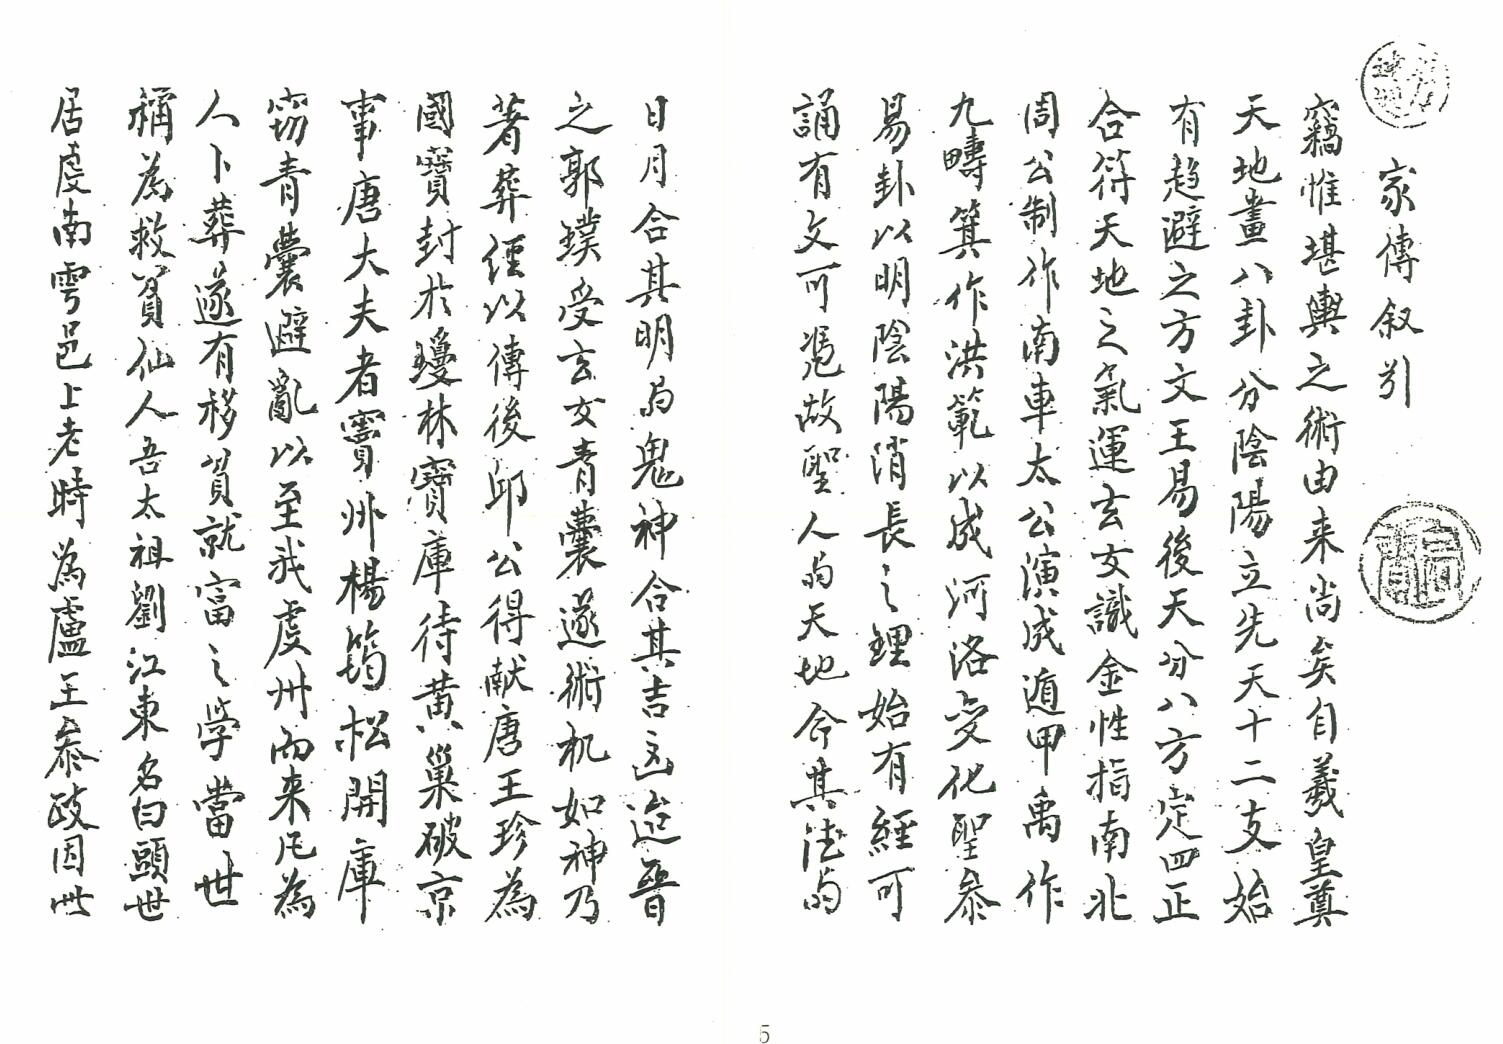 家傳叙引
竊惟堪輿之術由来尚矣自羲皇奠
天地畫八卦分陰陽立先天十二支始
有趨避之方文王易後天分八方定四正
合符天地之氣運玄女識金性指南北
周公制作南車太公演成遁甲禹作
九疇箕作洪範以成河洛变化聖叅
易卦以明陰陽消長之理始有經可
誦有文可凴故聖人与天地合其德与
日月合其明与鬼神合其吉凶迨晉
之郭璞受玄女青囊遂術机如神乃
著葬經以傳後邱公得献唐王珍為
國寶封於瓊林寶庫待黄巢破京
事唐大夫者竇州楊筠松開庫
窃青囊避亂以至我虔州而来凡為
人卜葬遂有移貧就富之学當世
稱為救貧仙人吾太祖劉江東名白頭世
居虔南雩邑上老時為盧王叅政因世
5